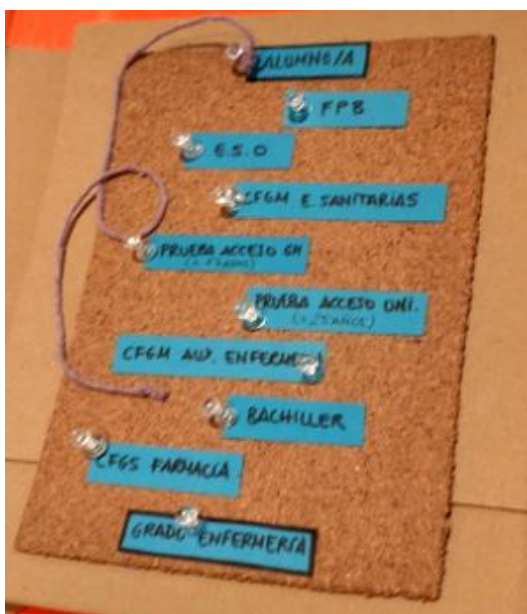 ALUMNO/A
FPB
E.S.O
CFGM E. SANITARIAS
PRUEBA ACCESO GM
PRUEBA ACCESO UNI.
(+25 AÑOS)
CFGM AUX. ENFERMERÍA
BACHILLER
CFGS FARMACIA
GRADO ENFERMERÍA